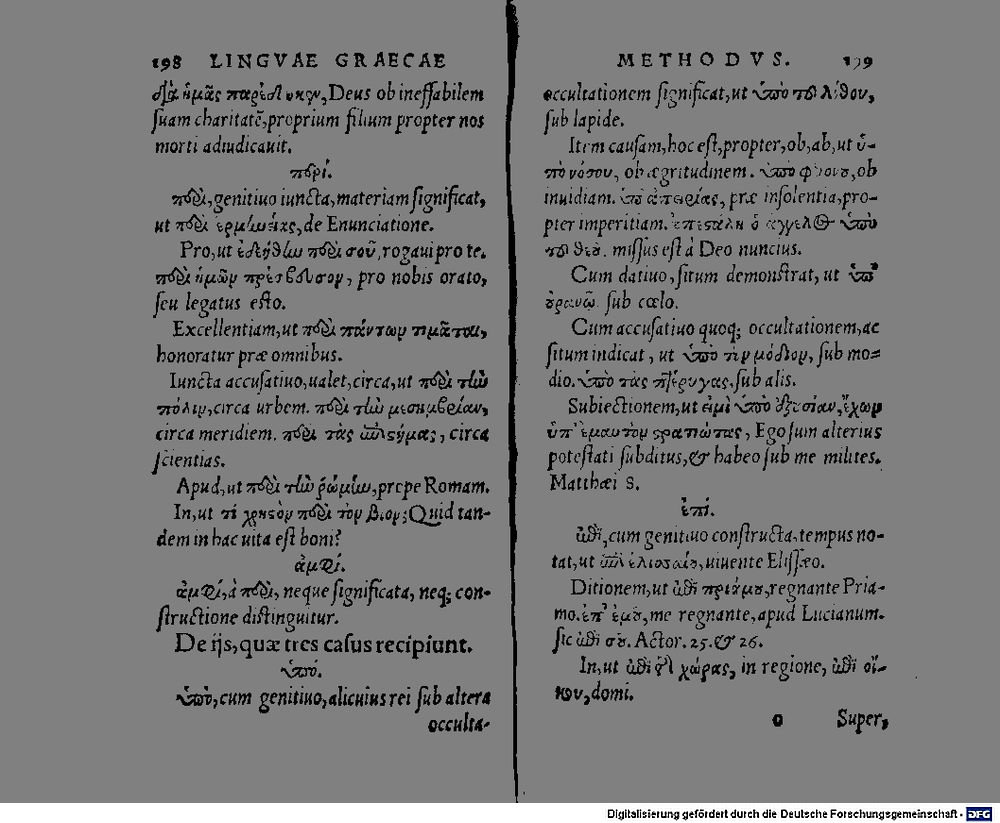 198 LINGVAE GRAECAE
ἡμᾶς Deus ob ineffabilem
ſuam charitatē, proprium filium propter nos
morti adiudicauit.
περί.
περὶ, genitiuo iuncta, materiam ſignificat,
ut περὶ ἑρμηνείας, de Enunciatione.
Pro, ut ἐδεήθην περὶ σοῦ, rogaui pro te.
περὶ ἡμῶν pro nobis orato,
ſeu legatus eſto.
Excellentiam, ut περὶ πάντων τιμᾶται,
honoratur præ omnibus.
Iuncta accuſatiuo, ualet, circa, ut περὶ τὴν
πόλιν, circa urbem. περὶ τὴν μεσημβρίαν,
circa meridiem. περὶ τὰς ἐπιστήμας, circa
ſcientias.
Apud, ut περὶ τὴν ῥώμην, prope Romam.
In, ut τί χρηστὸν περὶ τὸν βιον; Quid tan-
dem in hac uita eſt boni?
ἀμφί.
ἀμφί, à περὶ, neque ſignificata, neq; con-
ſtructione diſtinguitur.
De ijs, quæ tres caſus recipiunt.
ὑπό.
ὑπὸ, cum genitiuo, alicuius rei ſub altera
occulta-
METHODVS. 199
occultationem ſignificat, ut ὑπὸ τοῦ λίθου,
ſub lapide.
Item cauſam, hoc eſt, propter, ob, ab, ut ὑ-
πὸ νόσου, ob ægritudinem. ὑπὸ φθόνου, ob
inuidiam. ὑπὸ ἀπειρίας, præ inſolentia, pro-
pter imperitiam. ἐπεστάλη ὁ ἄγγελος ὑπὸ
τοῦ θεοῦ. miſſus eſt à Deo nuncius.
Cum datiuo, ſitum demonſtrat, ut ὑπ'
οὐρανῷ. ſub cœlo.
Cum accuſatiuo quoq; occultationem, ac
ſitum indicat, ut ὑπὸ τὸν μόδιον, ſub mo-
dio. ὑπὸ τὰς πτέρυγας, ſub alis.
Subiectionem, ut εἰμὶ ὑπὸ ἐξουσίαν, ἔχων
ὑπ' ἐμαυτὸν στρατιώτας, Ego ſum alterius
poteſtati ſubditus, & habeo ſub me milites.
Matthæi 8.
ἐπί.
ἐπὶ, cum genitiuo conſtructa, tempus no-
tat, ut ἐπὶ ἐλισσαίου, uiuente Eliſſæo.
Ditionem, ut ἐπὶ πριάμου, regnante Pria-
mo. ἐπ' ἐμοῦ, me regnante, apud Lucianum.
ſic ἐπὶ σοῦ. Actor. 25. & 26.
In, ut ἐπὶ τῆς χώρας, in regione, ἐπὶ οἴ-
κου, domi.
o Super,
Digitalisierung gefördert durch die Deutsche Forschungsgemeinschaft - DFG